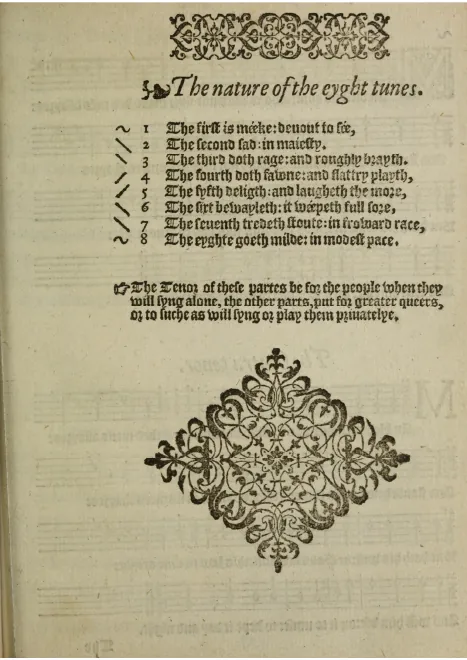 The nature of the eyght tunes.
1 The first is meeke: deuout to see,
2 The second sad: in maiesty.
3 The third doth rage: and roughly brayth.
4 The fourth doth fawne: and flattry playth,
5 The fyfth deligth: and laugheth the more,
6 The sixt bewayleth: it weepeth full sore,
7 The seuenth tredeth stoute: in froward race,
8 The eyghte goeth milde: in modest pace.
The Tenor of these partes be for the people when they
will syng alone, the other parts, put for greater queers,
or to suche as will syng or play them priuatelye.